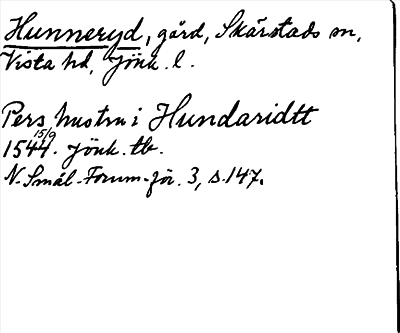 Hunneryd, gård, Skärstads sn,
Vista hd, Jönk. l.
Pers hustru i Hundaridtt
15/9 1544. Jönk. tb.
N. Smål. Fornm.för. 3, s. 147.